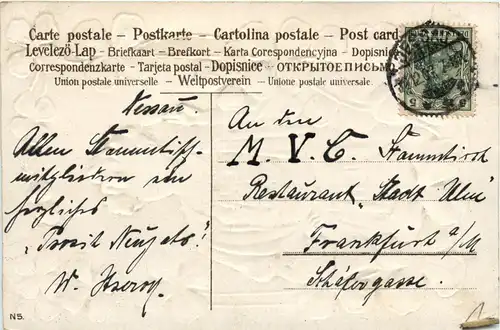 Carte postale – Postkarte – Cartolina postale – Post card
Levelező-Lap – Briefkaart – Brefkort – Karta Corespondencyjna – Dopisnice
Correspondenzkarte – Tarjeta postal – Dopisnice – ОТКРЫТОЕ ПИСЬМО
Union postale universelle – Weltpostverein – Unione postale universale.
Allen Stammtisch-
mitgliedern ein
herzliches
„Prosit Neujahr!"
W.
An den
M. V. C. Stammtisch
Restaurant „Stadt Ulm"
Frankfurt a/M
Schäfergasse.
N5.
5 5
1